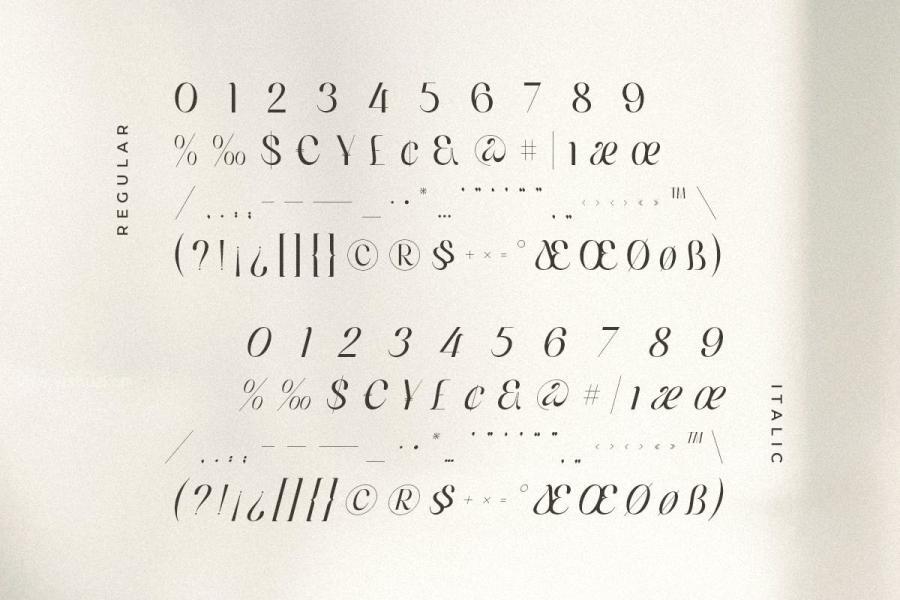 REGULAR
0 1 2 3 4 5 6 7 8 9
% ‰ $ € ¥ £ ¢ & @ # | ı æ œ
/ . , : ; - – — _ · • * … ‘ “ ' ’ " ” ‚ „ ‹ › ‹ › « » ™ \
( ? ! ¡ ¿ [ ] { } © ® § + × = ° Æ Œ Ø ø ß )
0 1 2 3 4 5 6 7 8 9
% ‰ $ € ¥ £ ¢ & @ # / ı æ œ
/ . , : ; - – — _ · • * … ‘ “ ' ’ " ” ‚ „ ‹ › ‹ › « » ™ \
( ? ! ¡ ¿ [ ] { } © ® § + × = ° Æ Œ Ø ø ß )
ITALIC